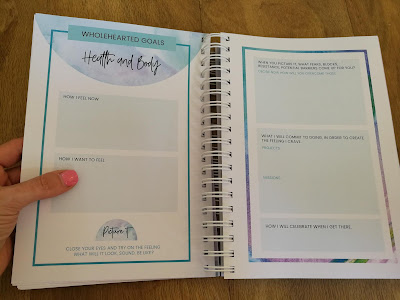 WHOLEHEARTED GOALS
Health and Body
HOW I FEEL NOW
HOW I WANT TO FEEL
Picture it
CLOSE YOUR EYES AND TRY ON THE FEELING.
WHAT WILL IT LOOK, SOUND, BE LIKE?
WHEN YOU PICTURE IT, WHAT FEARS, BLOCKS,
RESISTANCE, POTENTIAL BARRIERS COME UP FOR YOU?
HOW WILL YOU OVERCOME THEM?
WHAT I WILL COMMIT TO DOING IN ORDER TO CREATE
THE FEELINGS I CRAVE
PROJECTS:
HOW I WILL CELEBRATE WHEN I GET THERE.